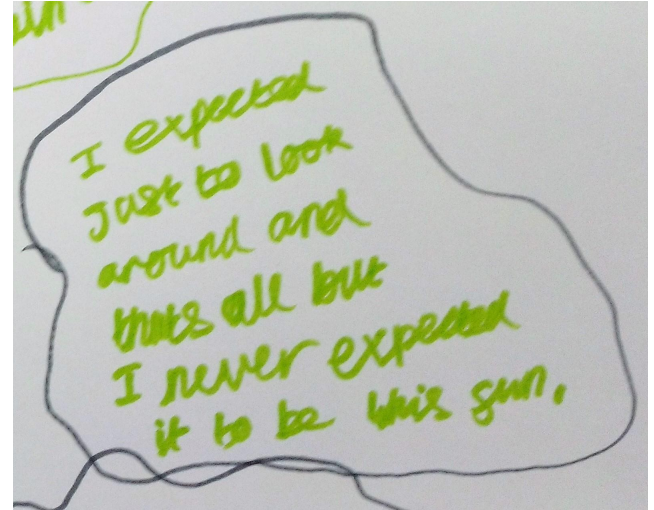 I expected
Just to look
around and
thats all but
I never expected
it to be this fun.